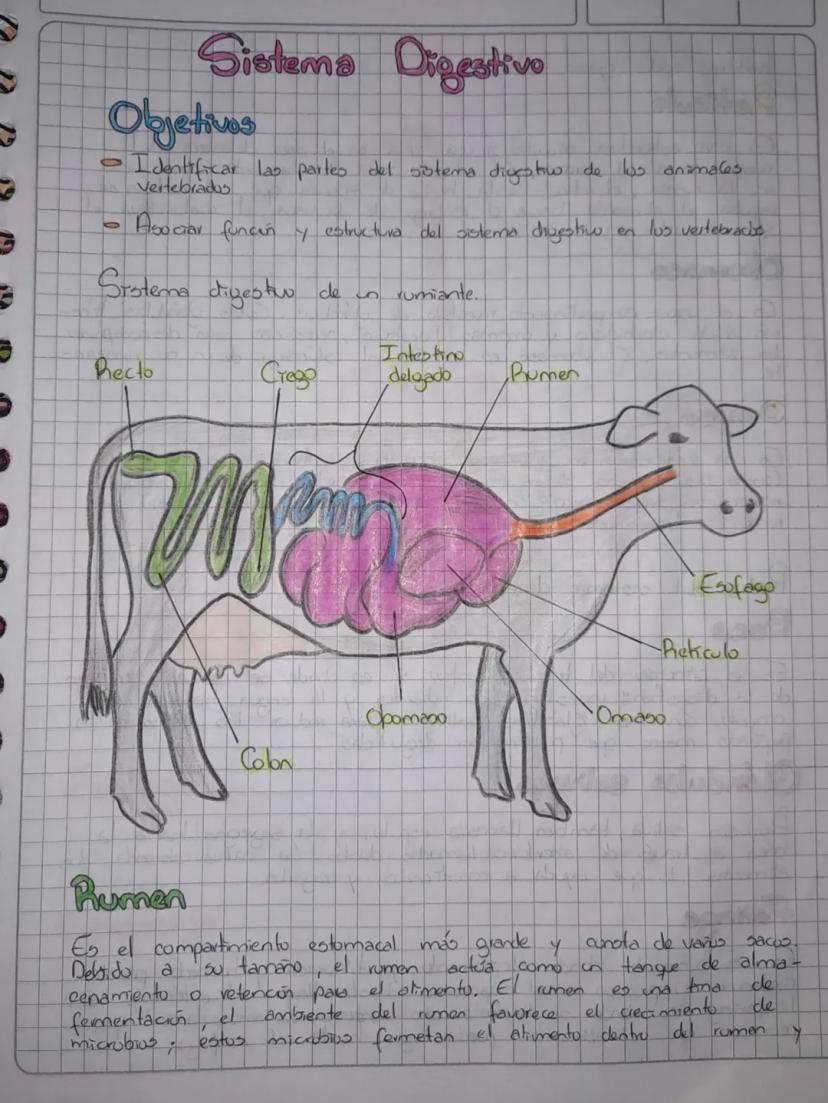 Sistema Digestivo
Objetivos
- Identificar las partes del sistema digestivo de los animales
vertebrados
- Asociar función y estructura del sistema digestivo en los vertebrados.
Sistema digestivo de un rumiante.
Recto
Ciego
Intestino
delgado
Rumen
Esofago
Reticulo
Omaso
Obomaso
Colon
Rumen
Es el compartimiento estomacal más grande y consta de varios sacos.
Debido a su tamaño, el rumen actúa como un tanque de alma-
cenamiento o retención para el alimento. El rumen es una tina de
fermentación, el ambiente del rumen favorece el crecimiento de
microbios; estos microbios fermetan el alimento dentro del rumen y